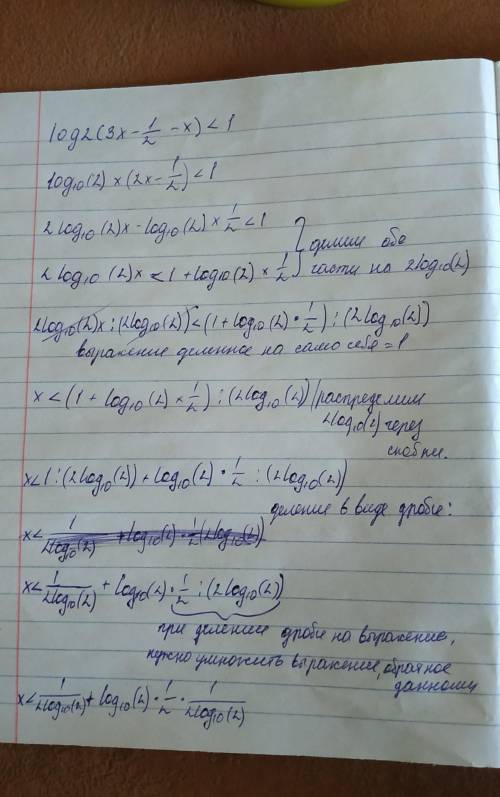 log2(3x - 1/2 - x) < 1
log₁₀(2) × (2x - 1/2) < 1
2 log₁₀(2)x - log₁₀(2) × 1/2 < 1
делим обе
2 log₁₀(2)x < 1 + log₁₀(2) × 1/2
части на 2log₁₀(2)
2log₁₀(2)x : (2log₁₀(2)) < (1 + log₁₀(2) · 1/2) : (2log₁₀(2))
выражение деленное на само себя = 1
x < (1 + log₁₀(2) × 1/2) : (2log₁₀(2)) / распределим
2log₁₀(2) через
скобки.
x < 1 : (2log₁₀(2)) + log₁₀(2) · 1/2 : (2log₁₀(2))
деление в виде дроби:
x < 1/2log₁₀(2) + log₁₀(2) · 1/2 (2log₁₀(2))
x < 1/2log₁₀(2) + log₁₀(2) · 1/2 : (2log₁₀(2))
при делении дроби на выражение,
нужно умножить выражение, обратное
данному
x < 1/2log₁₀(2) + log₁₀(2) · 1/2 · 1/2log₁₀(2)